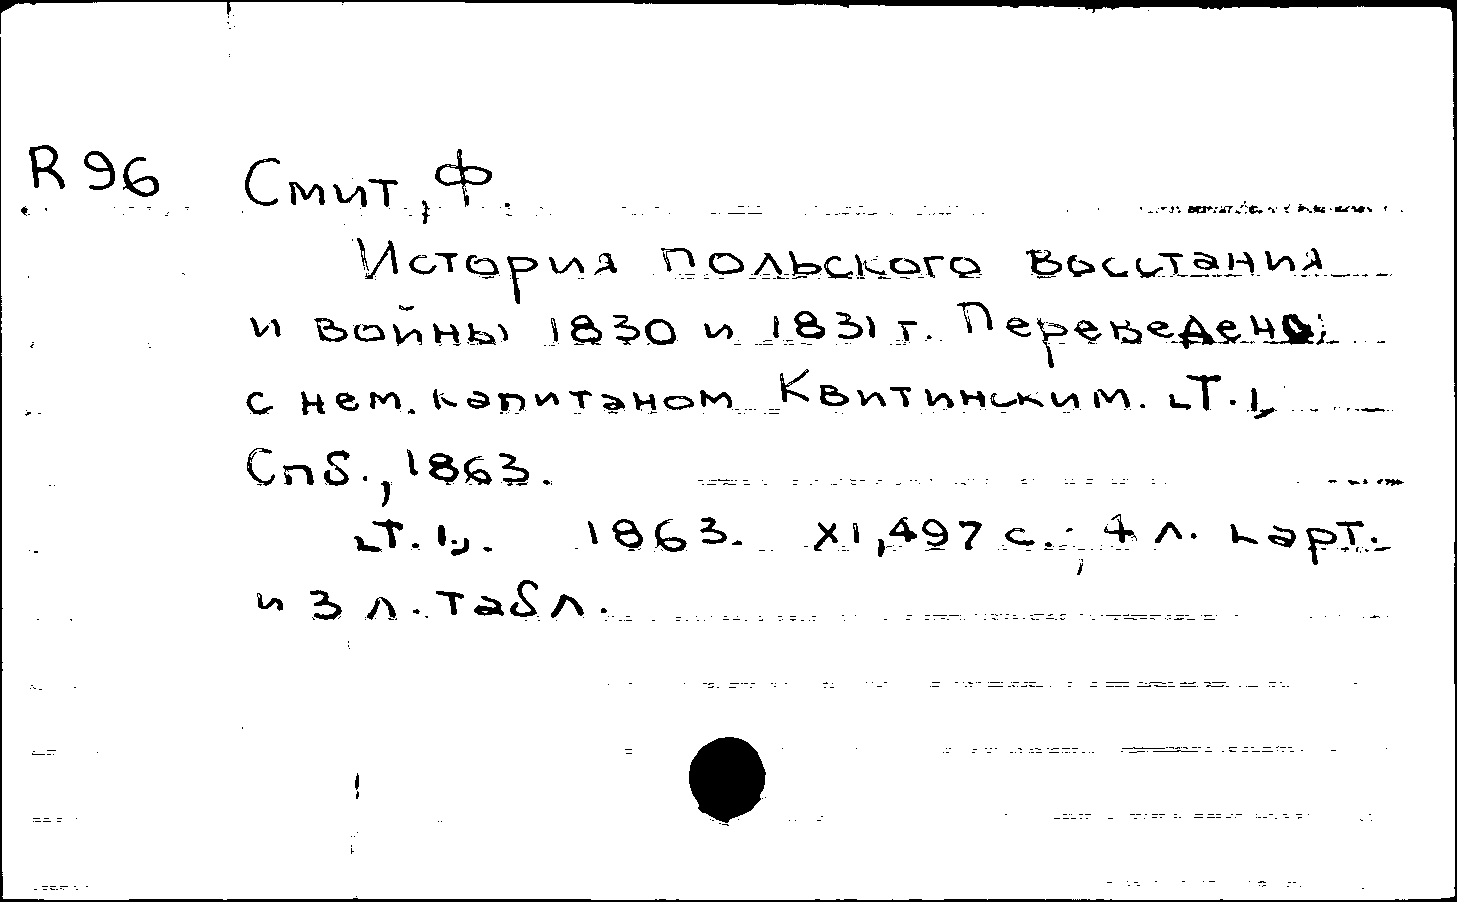 R 96 Смит, Ф.
История польского восстания
и войны 1830 и 1831 г. Переведено
с нем. капитаном Квитинским. [Т. 1]
Спб., 1863.
[Т. 1]. 1863. XI, 497 с.; 4 л. карт.
и 3 л. табл.